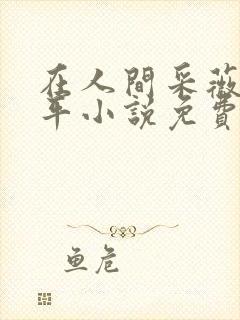 在人間采薇
年小說免費
魚危